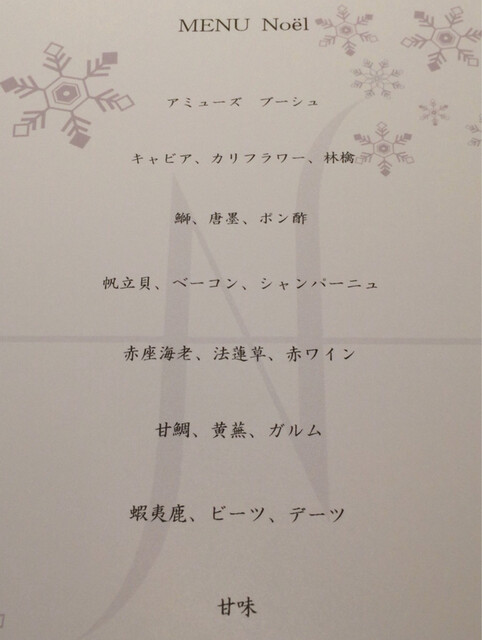 MENU Noël
アミューズ ブーシュ
キャビア、カリフラワー、林檎
鰤、唐墨、ポン酢
帆立貝、ベーコン、シャンパーニュ
赤座海老、法蓮草、赤ワイン
甘鯛、黄蕪、ガルム
蝦夷鹿、ビーツ、デーツ
甘味